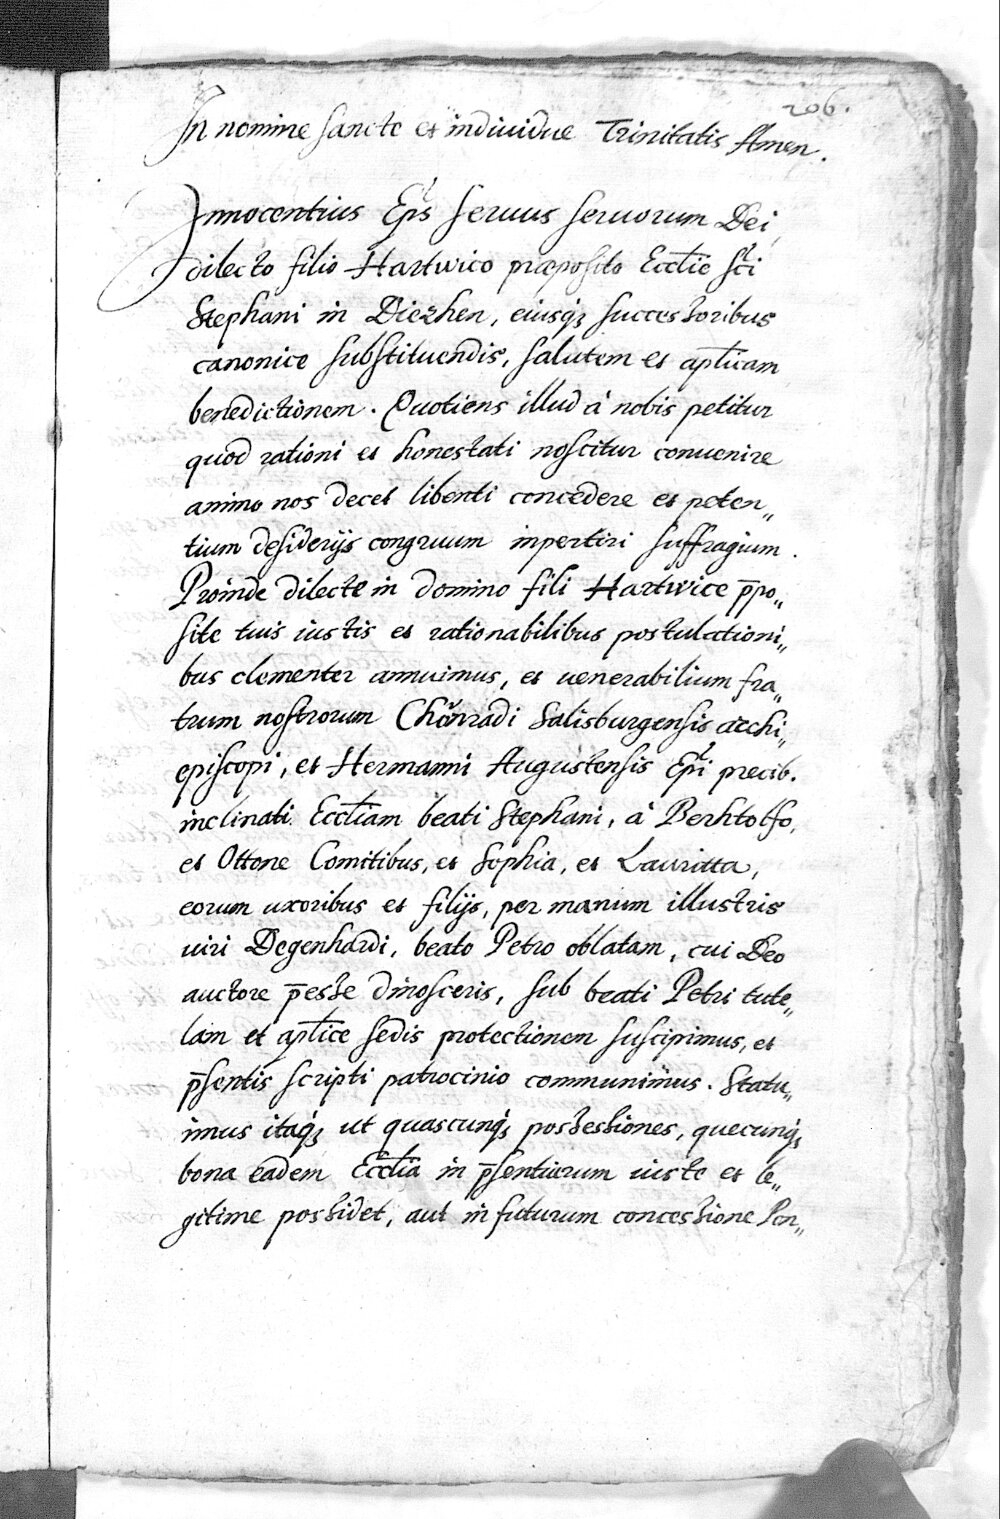 206.
In nomine sancte et indiuidue Trinitatis Amen.
Innocentius Eps seruus seruorum Dei
dilecto filio Hartwico præposito Ecclie sci
Stephani in Diezhen, eiusq; successoribus
canonice substituendis, salutem et aplicam
benedictionem. Quotiens illud à nobis petitur
quod rationi et honestati noscitur conuenire
animo nos decet libenti concedere et peten„
tium desiderijs congruum inpertiri suffragium.
Proinde dilecte in domino fili Hartwice p̄po„
site tuis iustis et rationabilibus postulationi„
bus clementer annuimus, et uenerabilium fra„
trum nostrorum Chŏnradi Salisburgensis archi„
episcopi, et Hermanni Augustensis Epi precib.
inclinati Eccliam beati Stephani, à Berhtolfo,
et Ottone Comitibus, et Sophia, et Lauritta,
eorum uxoribus et filijs, per manum illustris
uiri Degenhardi, beato Petro oblatam, cui Deo
auctore p̄esse dinosceris, sub beati Petri tute„
lam et aplice sedis protectionem suscipimus, et
p̄sentis scripti patrocinio communimus. Statu„
imus itaq; ut quascunq; possessiones, quecunq;
bona eadem Ecclia in p̄sentiarum iuste et le„
gitime possidet, aut in futurum concessione Pon„